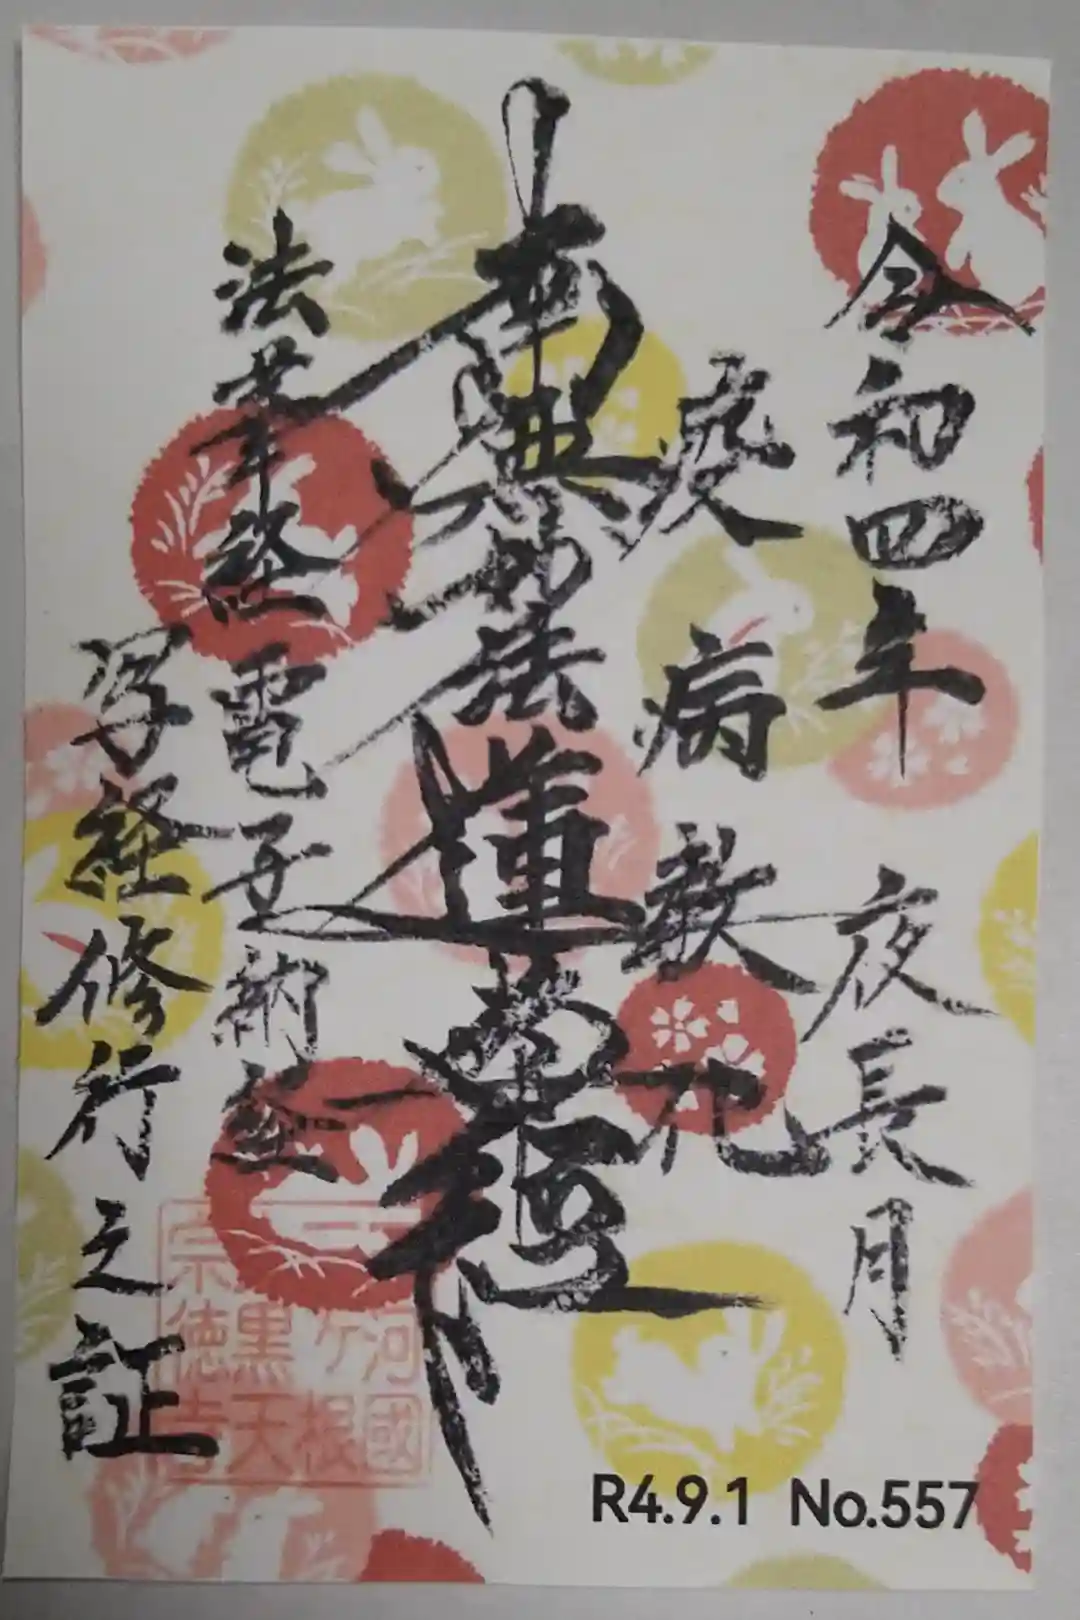 令和四年 夜長月
疫病
南無妙法蓮華経
法華経電子納経
写経修行之証
河國
ヶ根
黒天
宗徳寺
R4.9.1 No.557